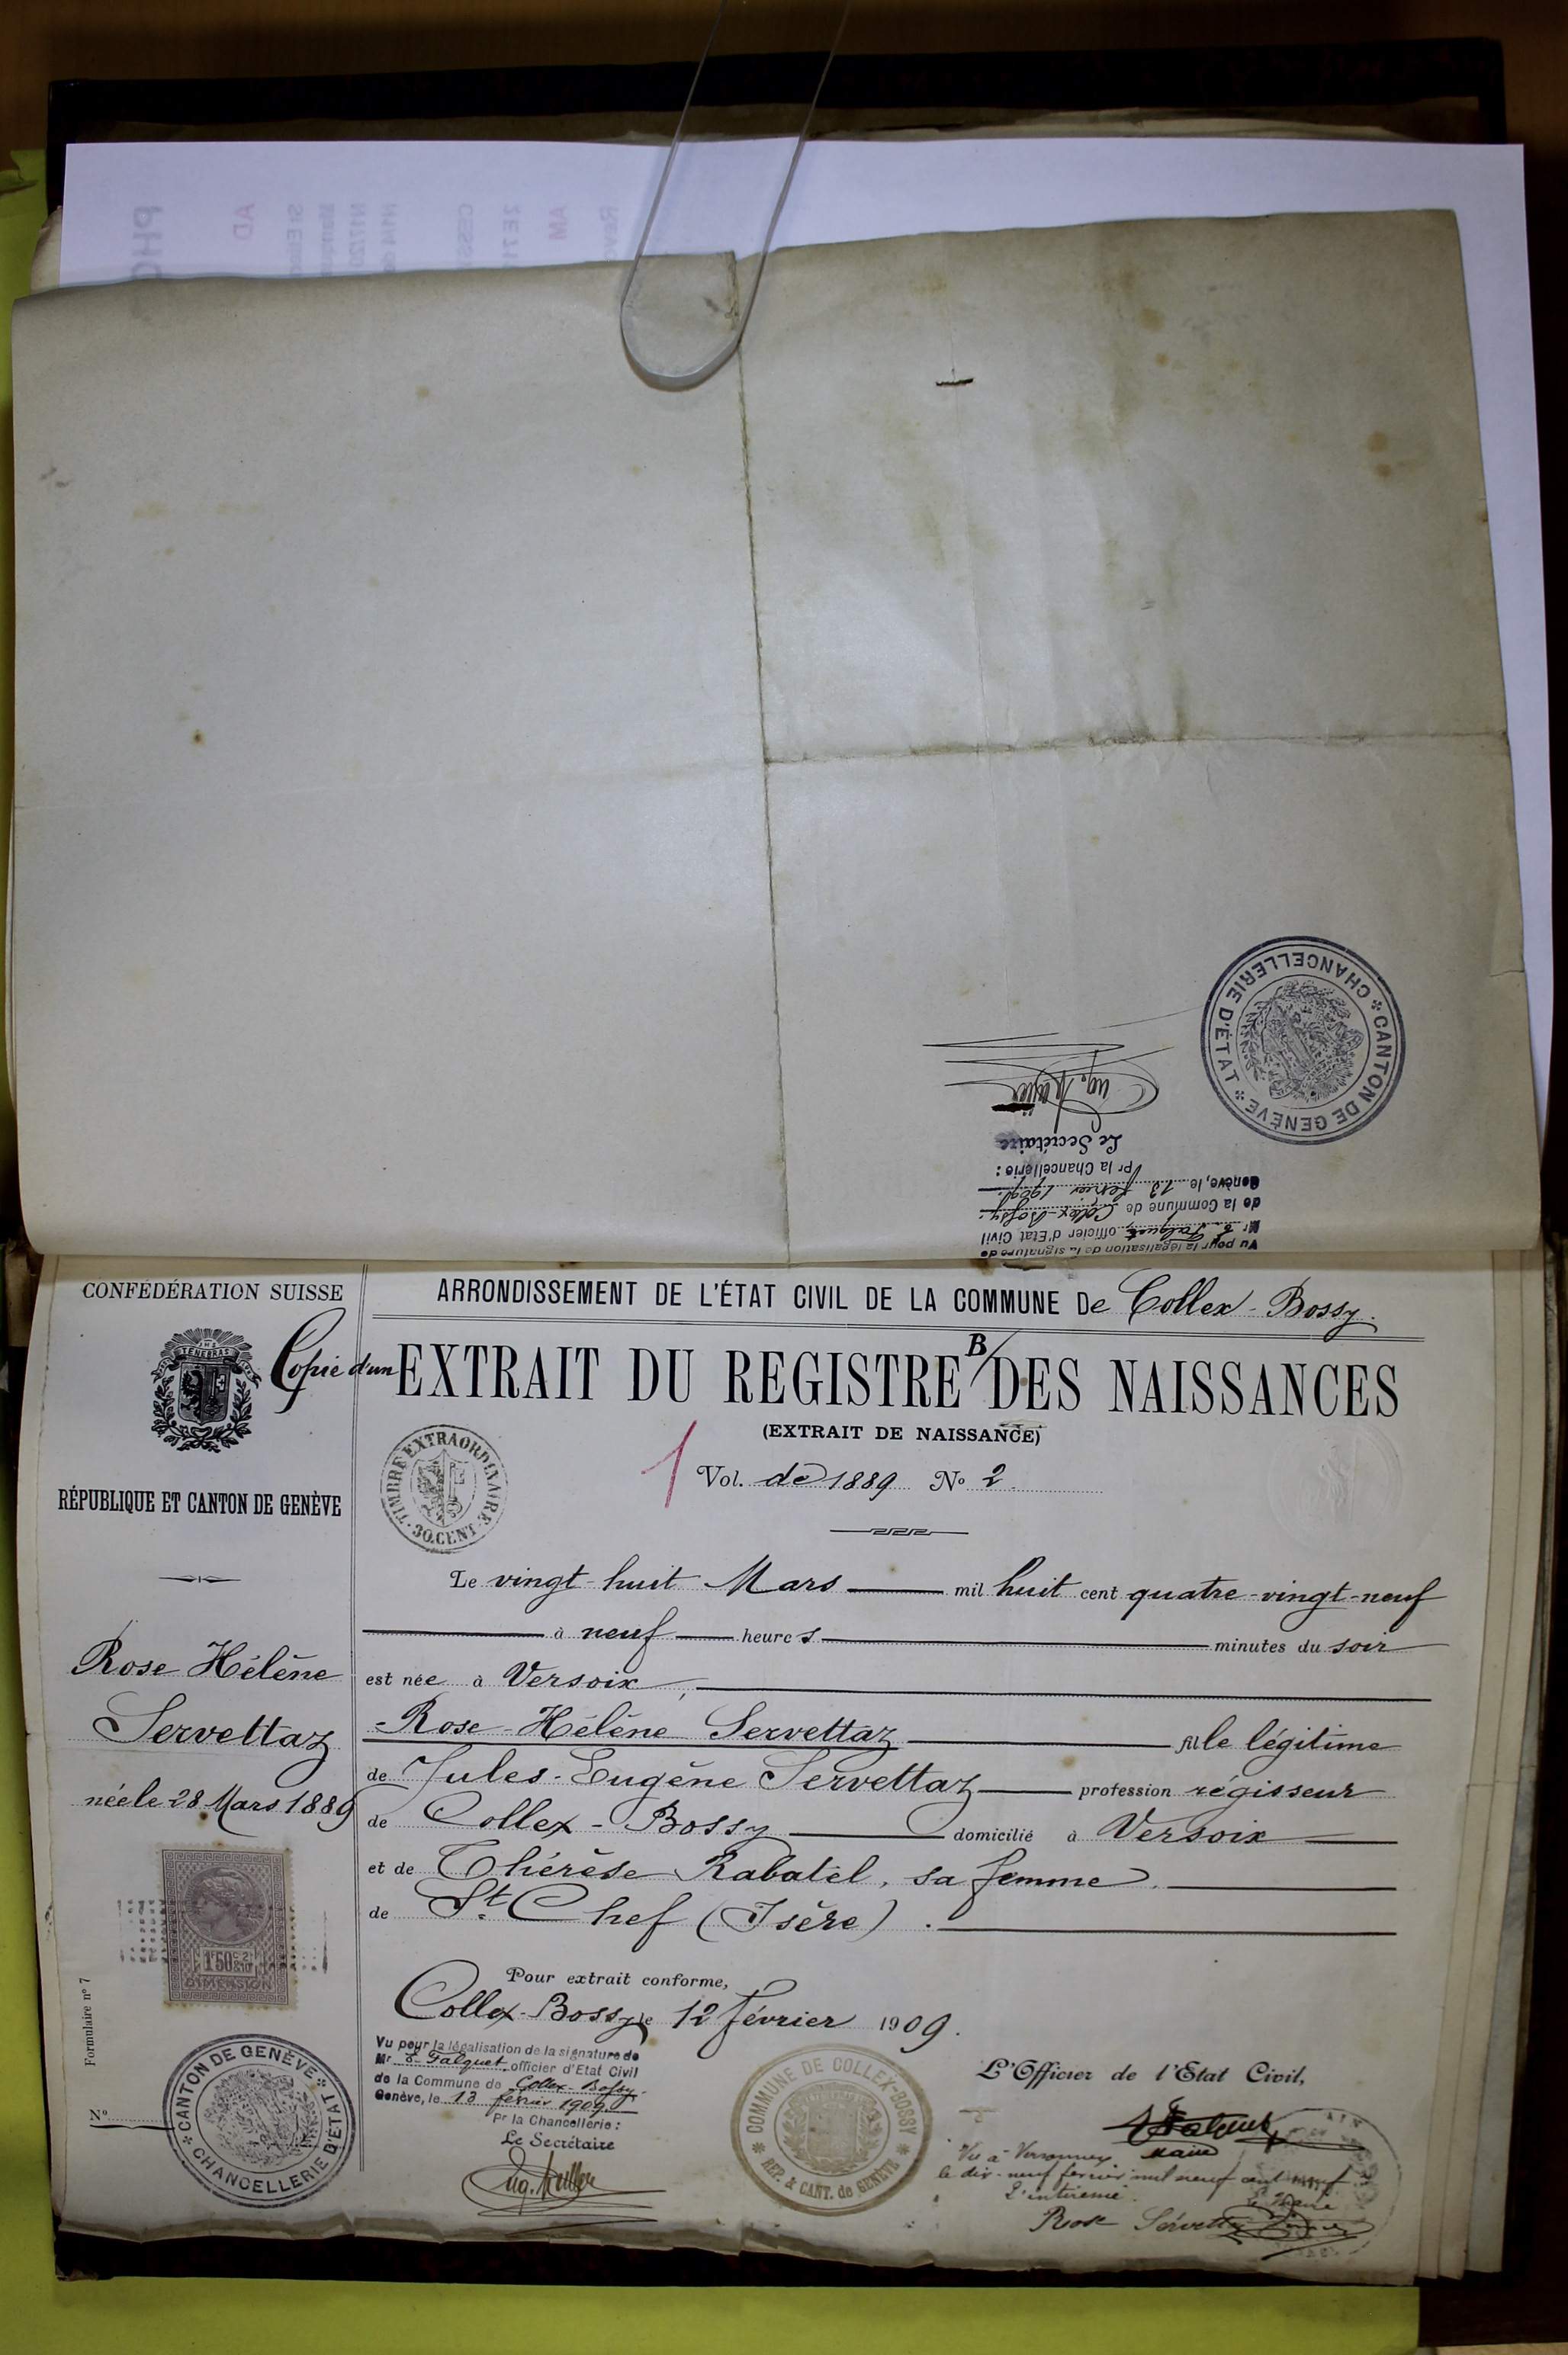 PHO
AD
AM
CANTON DE GENÈVE
CHANCELLERIE D'ÉTAT
Vu pour la légalisation de la signature de
Mr E. Falquet, officier d'Etat Civil
de la Commune de Collex-Bossy.
Genève, le 13 février 1909.
Pr la Chancellerie :
Le Secrétaire
CONFÉDÉRATION SUISSE
TENEBRAS
RÉPUBLIQUE ET CANTON DE GENÈVE
Rose Hélène
Servettaz
née le 28 Mars 1889
DIMENSION
Formulaire nº 7
Nº
CANTON DE GENÈVE
CHANCELLERIE D'ÉTAT
ARRONDISSEMENT DE L'ÉTAT CIVIL DE LA COMMUNE De Collex-Bossy.
Copie d'un EXTRAIT DU REGISTRE B DES NAISSANCES
(EXTRAIT DE NAISSANCE)
TIMBRE EXTRAORDINAIRE
30. CENT.
1 Vol. de 1889 Nº 2.
Le vingt-huit Mars mil huit cent quatre-vingt-neuf
à neuf heures minutes du soir
est née à Versoix,
Rose-Hélène Servettaz fille légitime
de Jules-Eugène Servettaz profession régisseur
de Collex-Bossy domicilié à Versoix
et de Thérèse Rabatel, sa femme.
de St. Chef (Isère).
Pour extrait conforme,
Collex-Bossy le 12 février 1909.
Vu pour la légalisation de la signature de
Mr E. Falquet, officier d'Etat Civil
de la Commune de Collex-Bossy.
Genève, le 13 février 1909.
Pr la Chancellerie :
Le Secrétaire
COMMUNE DE COLLEX-BOSSY
REP. & CANT. de GENÈVE
L'Officier de l'Etat Civil,
Falquet
Maire
Vu à
le dix-neuf février mil neuf cent neuf
L'intéressée
Le Maire
Rose Servettaz